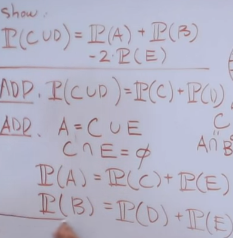 Show.
ℙ(C∪D) = ℙ(A) + ℙ(B)
-2·ℙ(E)
ADD. ℙ(C∪D) = ℙ(C) + ℙ(D)
ADD. A = C∪E
C
C∩E = ∅
A∩B
ℙ(A) = ℙ(C) + ℙ(E)
ℙ(B) = ℙ(D) + ℙ(E)